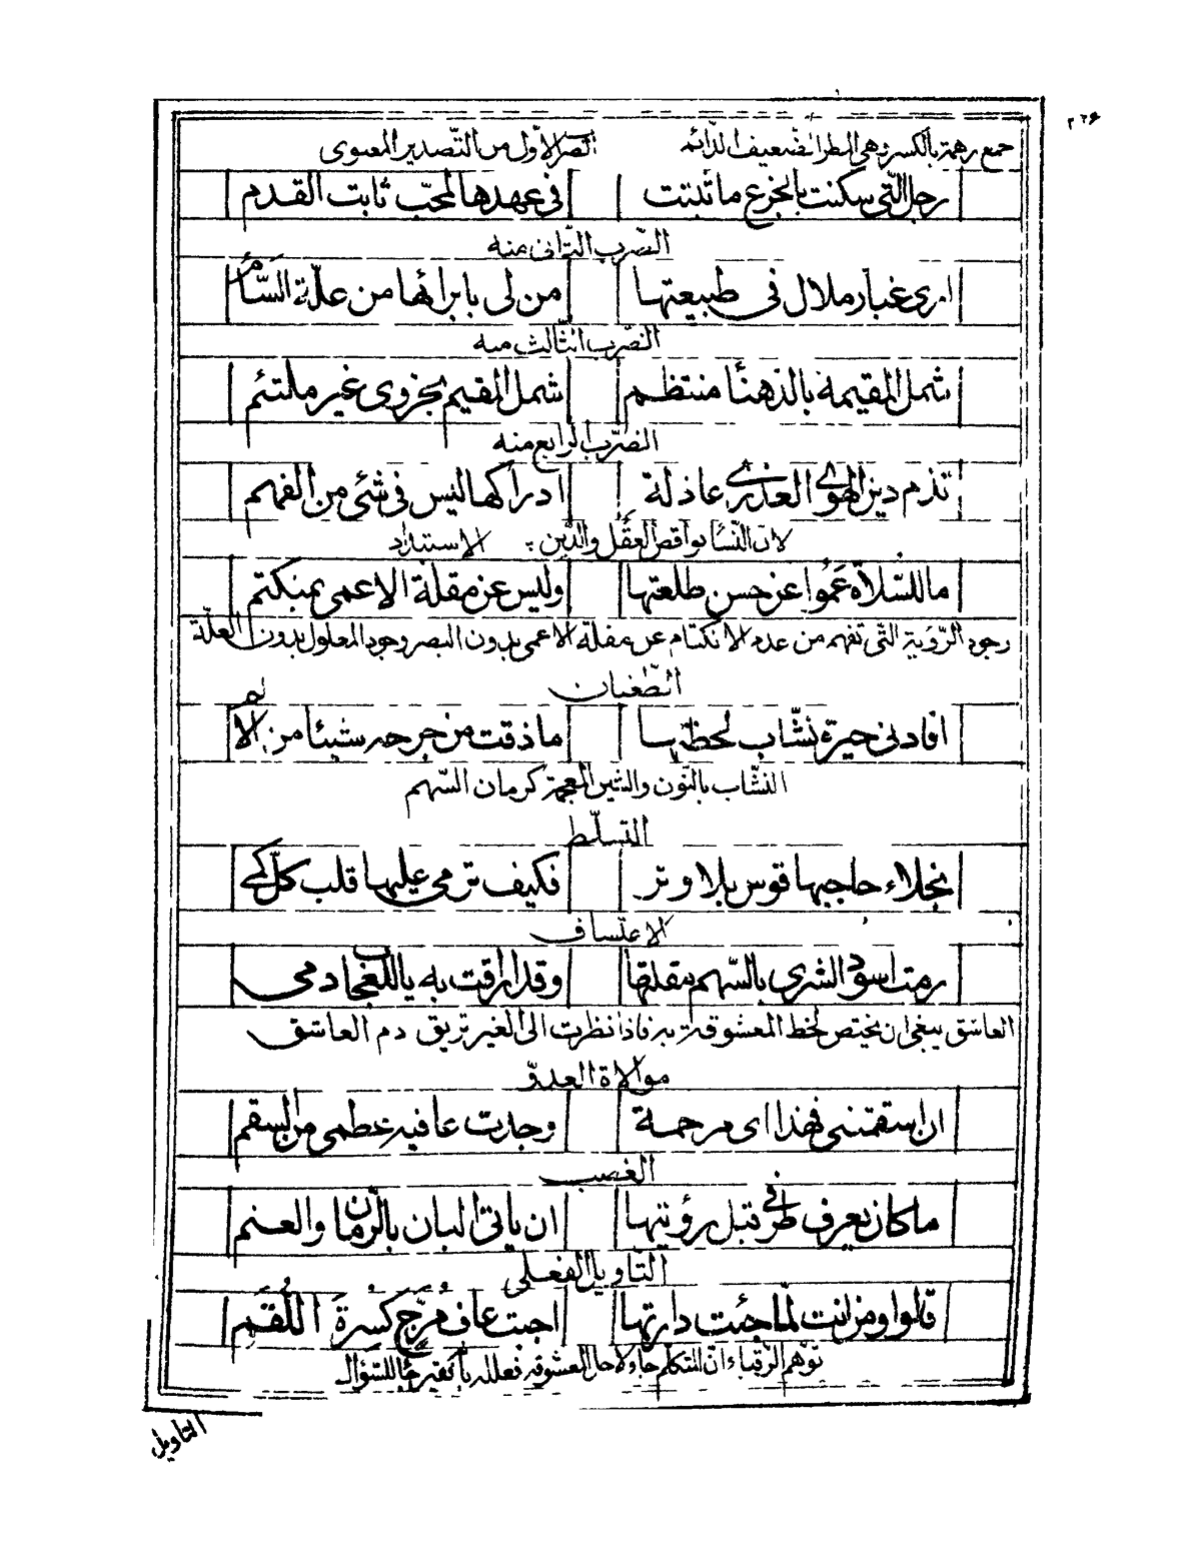 ٢٢۶
جمع رهمة بالكسر وهى المطر الضعيف الدائم الضرب الاوّل من التّصدير المعنوى
رجل الّتى سكنت بالجزع ما ثبتت فى عهدها لمحبّ ثابت القدم
الضّرب الثّانى منه
ارى غبار ملال فى طبيعتها من لى بابرائها من علّة السّأم
الضّرب الثّالث منه
شمل المقيمة بالدهنا منتظم شمل المقيم بحزوى غير ملتئم
الضّرب الرابع منه
تذم دين الهوى العذرى عاذلة ادراكها ليس فى شئ من الفهم
لانّ النّسا نواقص العقل والدّين الاستبداد
ما للسّلاة عَمُوا عن حسن طلعتها وليس عن مقلة الاعمى بمنكتم
وجود الرّؤية الّتى تفهم من عدم الانكتام عن مقلة الاعمى بدون البصر وجود المعلول بدون العلّة
الطّغيان
افادنى حيرة نشّاب لحظتها ما ذقت من جرحه شيئا من الالم
النشّاب بالنّون والشين المعجمة كرمان السّهم
التسلّط
نجلاء حاجبها قوس بلا وتر فكيف ترمى عليها قلب كلّ كمى
الاعتساف
رمت اسود الشرى بالسّهم مقلتها وقد اراقت به ياللغنجا دمى
العاشق ينبغى ان يختص لحظ المعشوقة به فاذا نظرت الى الغير تريق دم العاشق
موالاة العدوّ
ان اسقمتنى فهذا اى مرحمة وجدت عافية عظمى من السقم
الغصب
ما كان يعرف طرفى قبل رؤيتها ان ياتى البان بالرّمان والعنم
التّاويل الفعلى
قالوا ومن انت لمّا جئت دارتها اجبت عاف مُرَجٍّ كسْرةَ اللُّقَم
توهّم الرّقباء انّ المتكلم جاء لاجل المعشوقة فعلله بانه فقير جا للسّؤال
التاويل